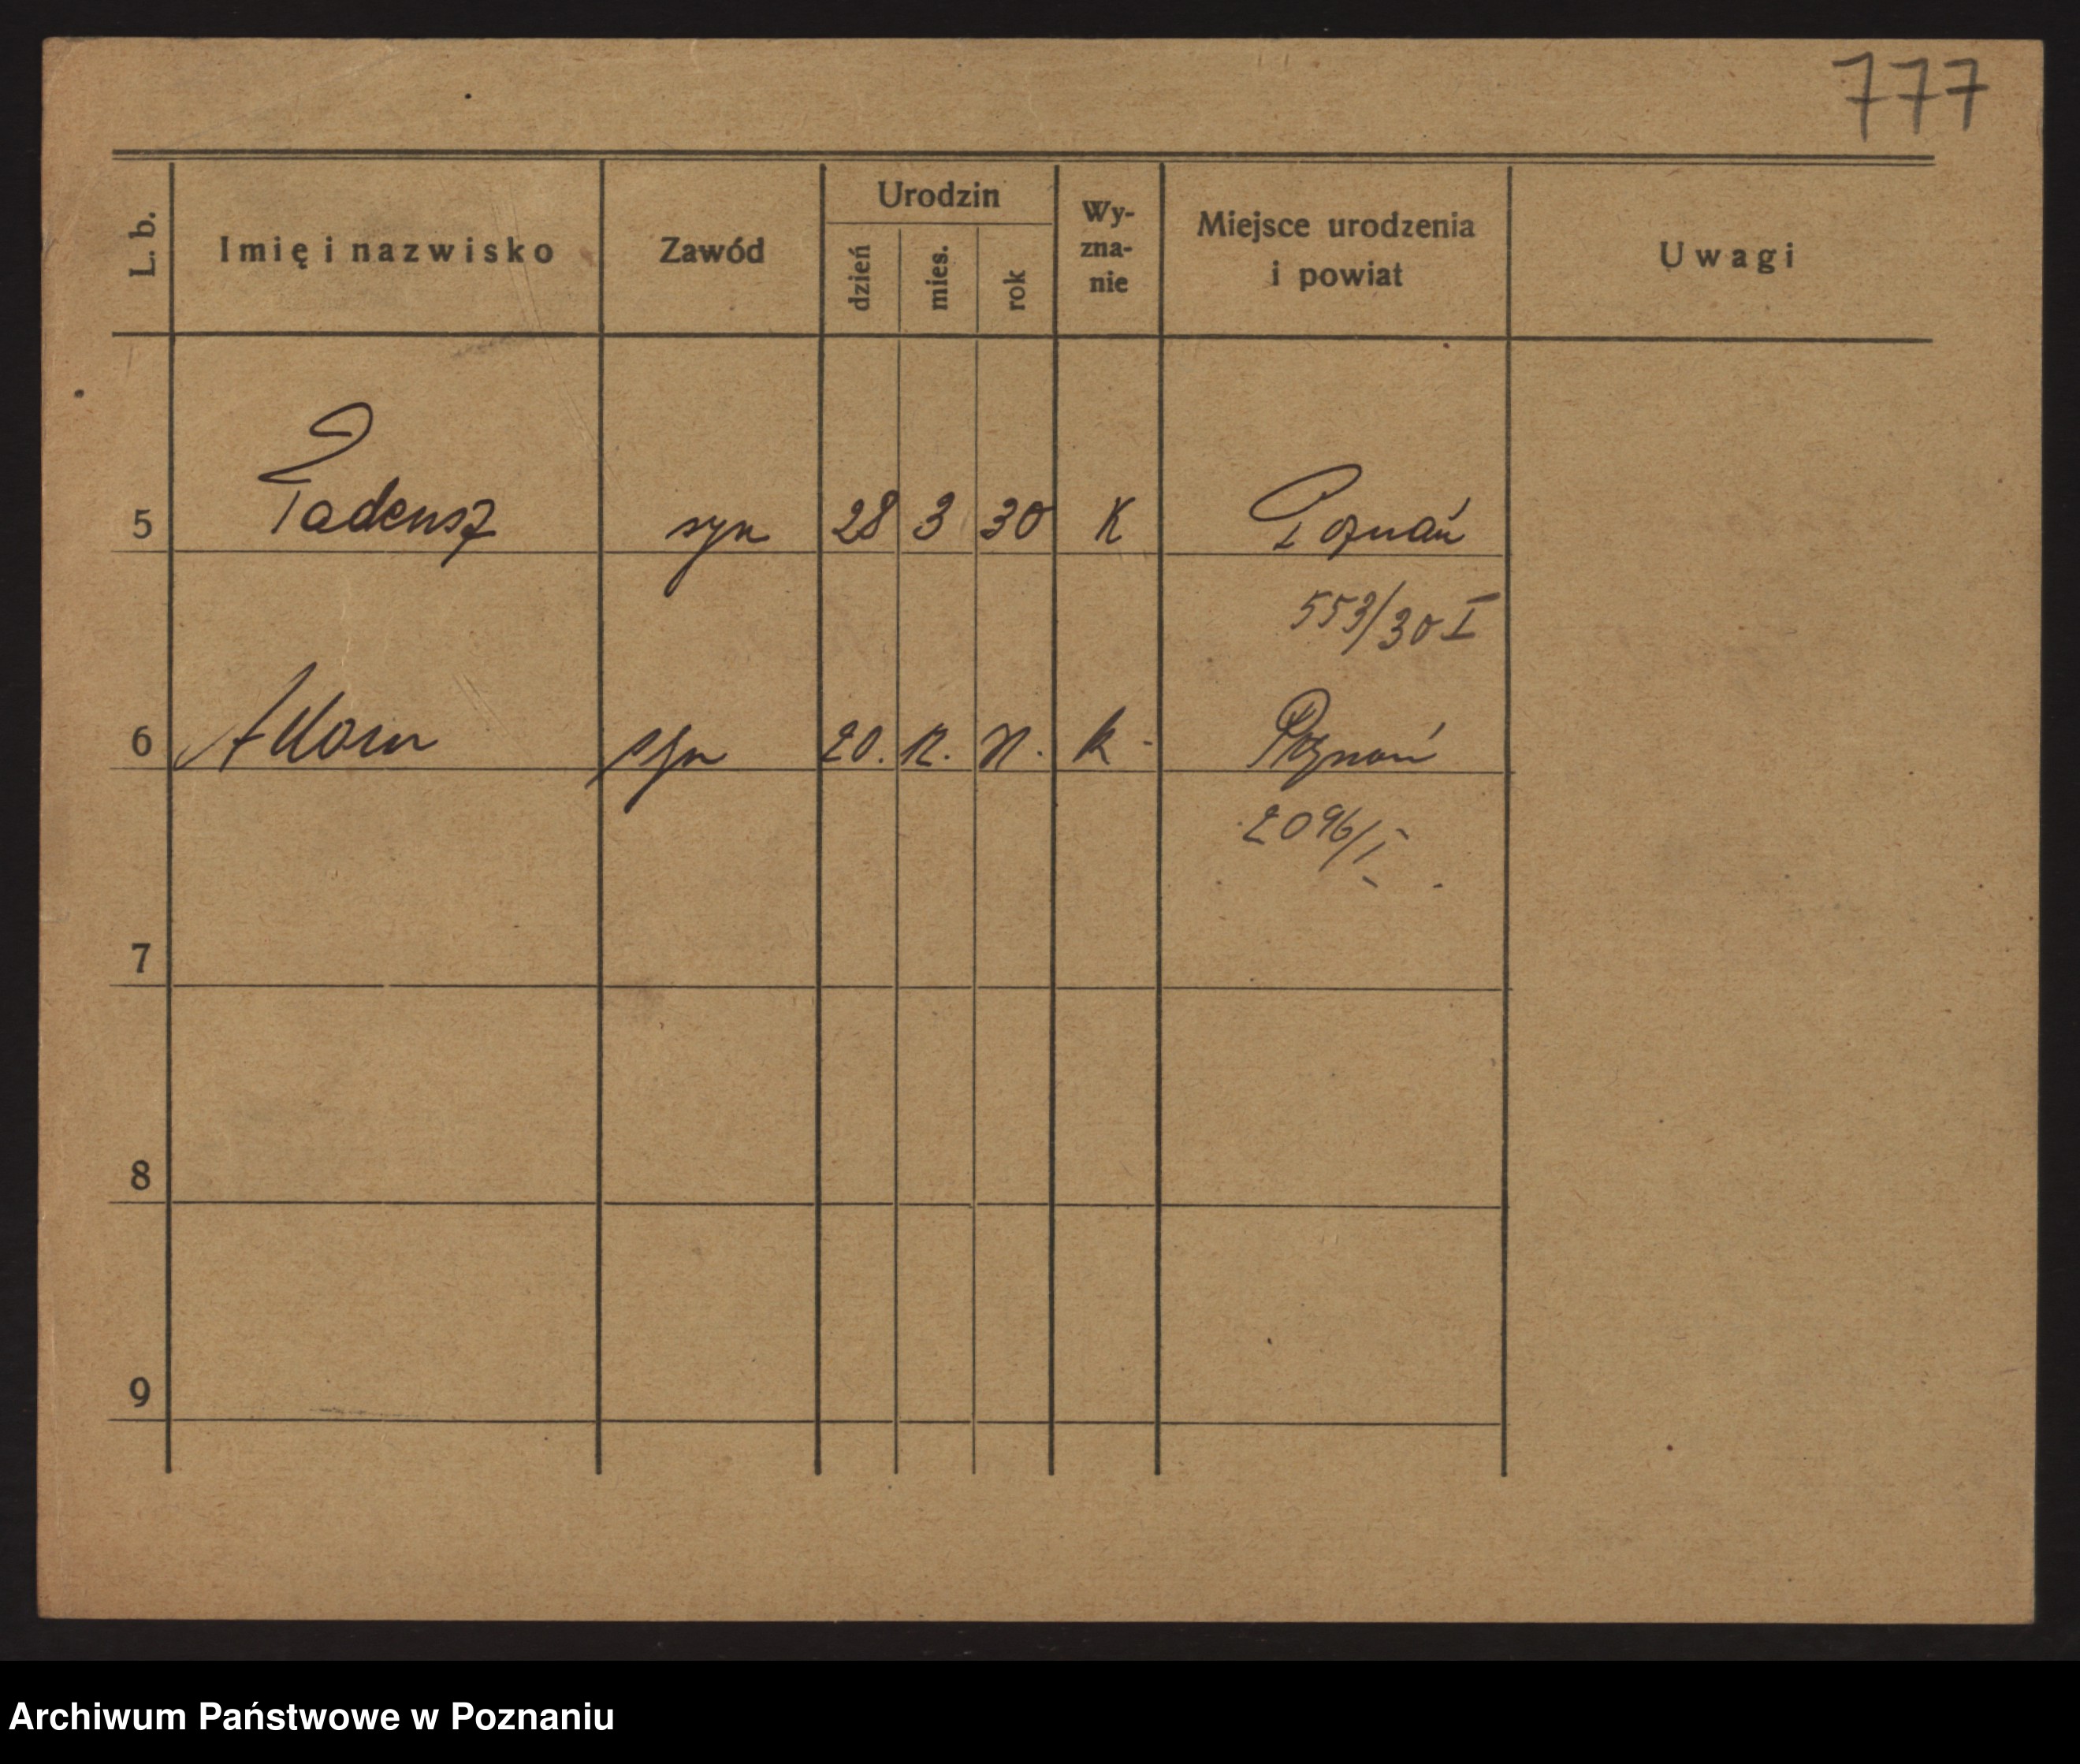 777
L. b.
Imię i nazwisko
Zawód
Urodzin
dzień
mies.
rok
Wy-
zna-
nie
Miejsce urodzenia
i powiat
Uwagi
5 Tadeusz syn 28 3 30 K Poznań
553/30 I
6 Adam syn 20. 12. k - Poznań
2096/I
7
8
9
Archiwum Państwowe w Poznaniu